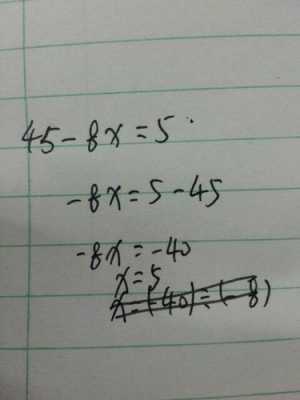 45-8x=5
-8x=5-45
-8x=-40
x=5